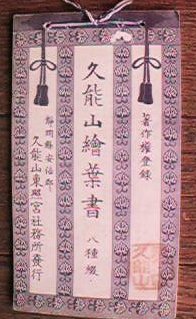 著作権登録
久能山繪葉書
八種綴
静岡縣安倍郡
久能山東照宮社務所發行
久能山